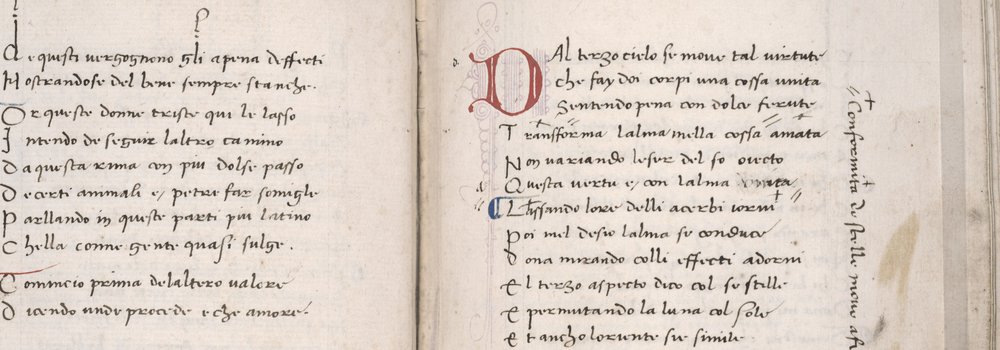 de questi vergognono gli apena deffecti
Nostrandose del bene sempre stanche.
Or queste donne triste qui le lasso
Intendo de seguir laltro camino
Daquesta rima con piu dolse passo
De certi animali e, petre far somigle
Parllando in queste parti piu latino
Chella conne gente quasi sulge.
Comincio prima delaltero valore
Dicendo unde procede e che amore.
DAl terzo cielo se move tal virtute
che fay doi corpi una cossa unita
Sentendo pena con dolce ferute
Transforma lalma nella cossa amata
Non variando leser del so oiecto
Questa vertu e, con lalma
Lassando lore delli acerbi iorni
Poi nel desio lalma se conduce
Dona mirando colli effecti adorni
El terzo aspecto dico col se stille
E permutando la luna col sole
Et ancho loriente sie simile
Conformita de stelle move